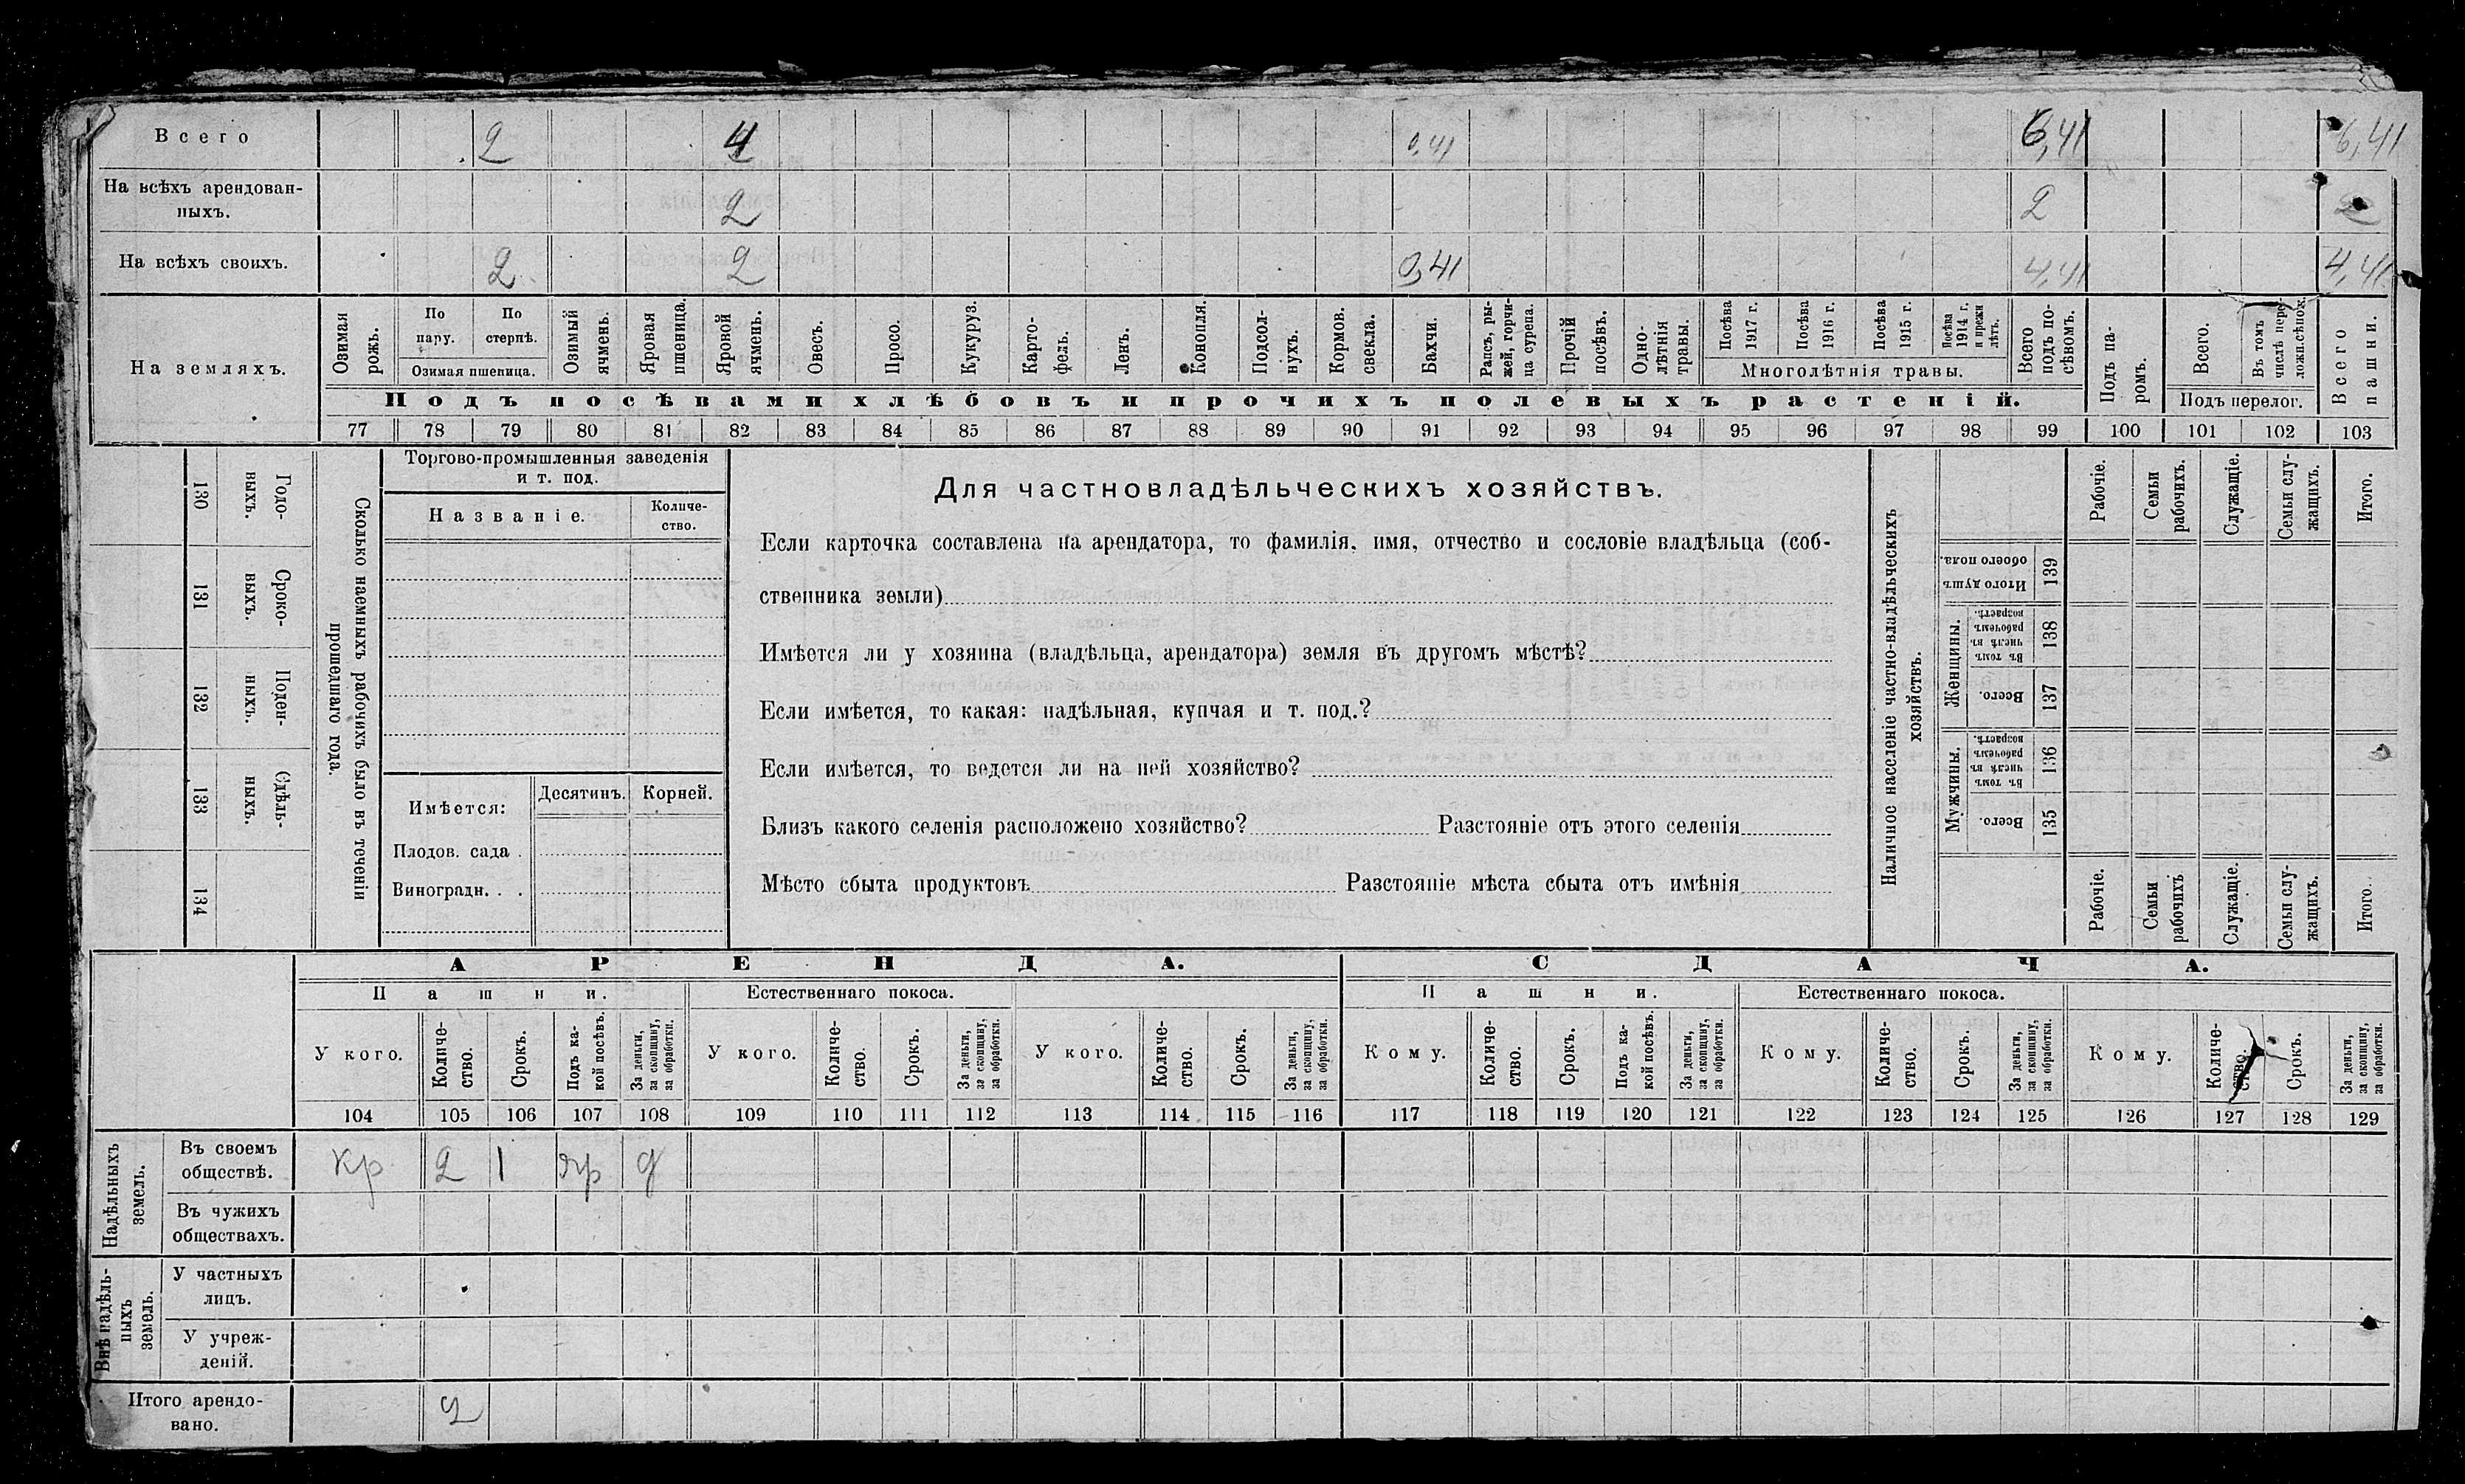 Всего 2 4 0,41 6,41 6,41
На всѣхъ арендованныхъ. 2 2 2
На всѣхъ своихъ. 2 2 0,41 4,41 4,41
На земляхъ.
Озимая рожь.
По пару.
По стернѣ.
Озимая пшеница.
Озимый ячмень.
Яровая пшеница.
Яровой ячмень.
Овесъ.
Просо.
Кукуруз.
Карто-
фель.
Ленъ.
Конопля.
Подсол-
нухъ.
Кормов.
свекла.
Бахчи.
Рапсъ, ры-
жей, горчи-
ца сурепа.
Прочій
посѣвъ.
Одно-
лѣтнія
травы.
Посѣва
1917 г.
Посѣва
1916 г.
Посѣва
1915 г.
Посѣва
1914 г.
и прежн
лѣтъ.
Многолѣтнія травы.
Всего
подъ по-
сѣвомъ.
Подъ па-
ромъ.
Всего.
Въ томъ
числѣ пере-
ложн.сѣнок.
Подъ перелог.
Всего
пашни.
Подъ посѣвами хлѣбовъ и прочихъ полевыхъ растеній.
77 78 79 80 81 82 83 84 85 86 87 88 89 90 91 92 93 94 95 96 97 98 99 100 101 102 103
130 Годо-
выхъ.
131 Сроко-
выхъ.
132 Поден-
ныхъ.
133 Сдѣль-
ныхъ.
134
Сколько наемныхъ рабочихъ было въ теченіи
прошедшаго года.
Торгово-промышленныя заведенія
и т. под.
Названіе.
Количе-
ство.
Имѣется:
Десятинъ. Корней.
Плодов. сада .
Виноградн. . .
Для частновладѣльческихъ хозяйствъ.
Если карточка составлена на арендатора, то фамилія, имя, отчество и сословіе владѣльца (соб-
ственника земли)
Имѣется ли у хозяина (владѣльца, арендатора) земля въ другомъ мѣстѣ?
Если имѣется, то какая: надѣльная, купчая и т. под.?
Если имѣется, то ведется ли на ней хозяйство?
Близъ какого селенія расположено хозяйство? Разстояніе отъ этого селенія
Мѣсто сбыта продуктовъ Разстояніе мѣста сбыта отъ имѣнія
Наличное населеніе частно-владѣльческихъ
хозяйствъ.
Рабочіе.
Семьи
рабочихъ.
Служащіе.
Семьи слу-
жащихъ.
Итого.
Итого душъ
обоего пола.
139
Женщины.
Въ томъ
числѣ въ
рабочемъ
возрастѣ.
138
Всего.
137
Мужчины.
Въ томъ
числѣ въ
рабочемъ
возрастѣ.
136
Всего.
135
Рабочіе.
Семьи
рабочихъ
Служащіе.
Семьи слу-
жащихъ.
Итого.
АРЕНДА. СДАЧА.
Пашни. Естественнаго покоса. Пашни. Естественнаго покоса.
У кого.
Количе-
ство.
Срокъ.
Подъ ка-
кой посѣвъ.
За деньги,
за скопщину,
за обработки.
У кого.
Количе-
ство.
Срокъ.
За деньги,
за скопщину,
за обработки.
У кого.
Количе-
ство.
Срокъ.
За деньги,
за скопщину,
за обработки.
Кому.
Количе-
ство.
Срокъ.
Подъ ка-
кой посѣвъ.
За деньги,
за скопщину,
за обработки.
Кому.
Количе-
ство.
Срокъ.
За деньги,
за скопщину,
за обработки.
Кому.
Количе-
ство.
Срокъ.
За деньги,
за скопщину,
за обработки.
104 105 106 107 108 109 110 111 112 113 114 115 116 117 118 119 120 121 122 123 124 125 126 127 128 129
Надѣльныхъ
земель.
Въ своемъ
обществѣ.
кр 2 1 яр д
Въ чужихъ
обществахъ.
Внѣ надѣль-
ныхъ
земель.
У частныхъ
лицъ.
У учреж-
деній.
Итого арендо-
вано.
2